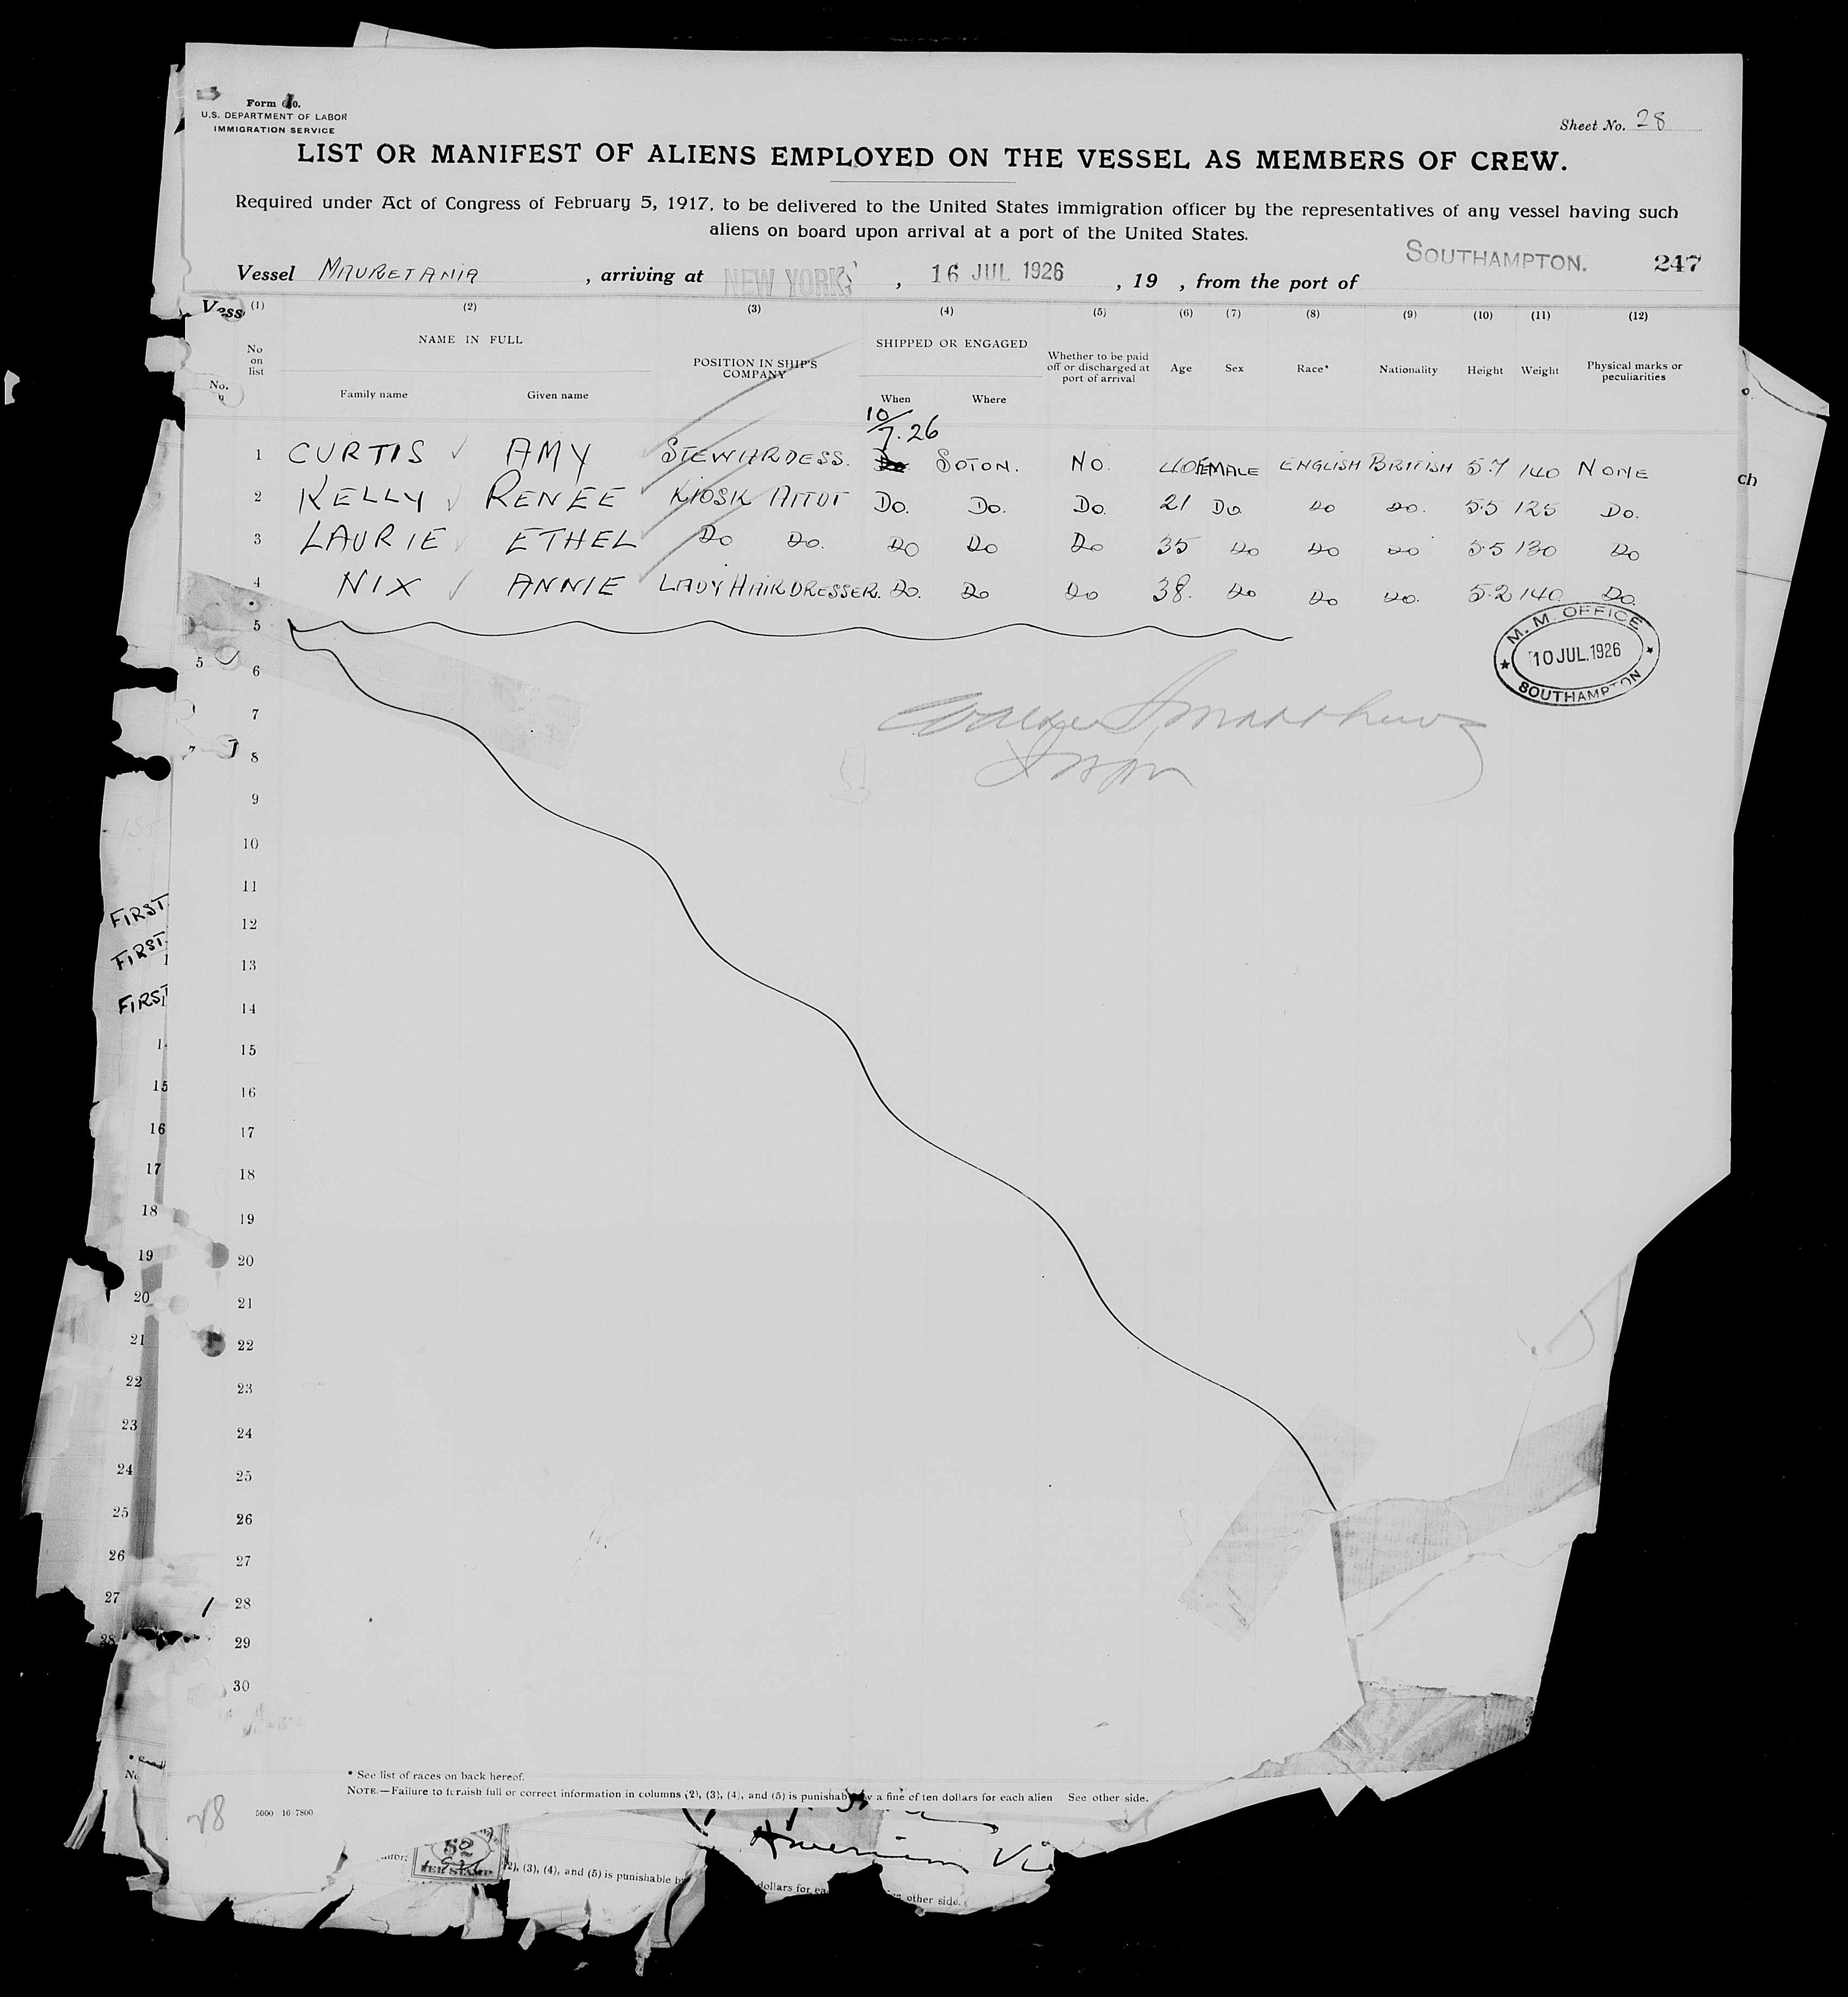 Form
U.S. DEPARTMENT OF LABOR
IMMIGRATION SERVICE
Sheet No. 28
LIST OR MANIFEST OF ALIENS EMPLOYED ON THE VESSEL AS MEMBERS OF CREW.
Required under Act of Congress of February 5, 1917, to be delivered to the United States immigration officer by the representatives of any vessel having such
aliens on board upon arrival at a port of the United States.
Vessel MAURETANIA, arriving at NEW YORK, 16 JUL 1926, 19 , from the port of SOUTHAMPTON. 247
Vess (1) (2) (3) (4) (5) (6) (7) (8) (9) (10) (11) (12)
No on list NAME IN FULL POSITION IN SHIP'S COMPANY SHIPPED OR ENGAGED Whether to be paid off or discharged at port of arrival Age Sex Race* Nationality Height Weight Physical marks or peculiarities
No. Family name Given name When Where
10/7.26
1 CURTIS AMY STEWARDESS. Do SOTON. NO. 40 FEMALE ENGLISH BRITISH 5.7 140 NONE
2 KELLY RENEE KIOSK ATTDT Do. Do. Do. 21 Do Do Do. 5.5 125 Do.
3 LAURIE ETHEL Do Do. Do Do Do 35 Do Do Do 5.5 130 Do
4 NIX ANNIE LADY HAIRDRESSER. Do. Do Do 38. Do Do Do. 5.2 140. Do.
5
M. M. OFFICE
10 JUL. 1926
SOUTHAMPTON
5 6
7
7 8
9
10
11
FIRST 12
FIRST 13
FIRST 14
15
15 16
16 17
17 18
18 19
19 20
20 21
21 22
22 23
23 24
24 25
25 26
26 27
27 28
28 29
30
ch
* See list of races on back hereof.
NOTE.—Failure to furnish full or correct information in columns (2), (3), (4), and (5) is punishable by a fine of ten dollars for each alien See other side.
28
5000 16-7800
(2), (3), (4), and (5) is punishable b
dollars for ea
other side.